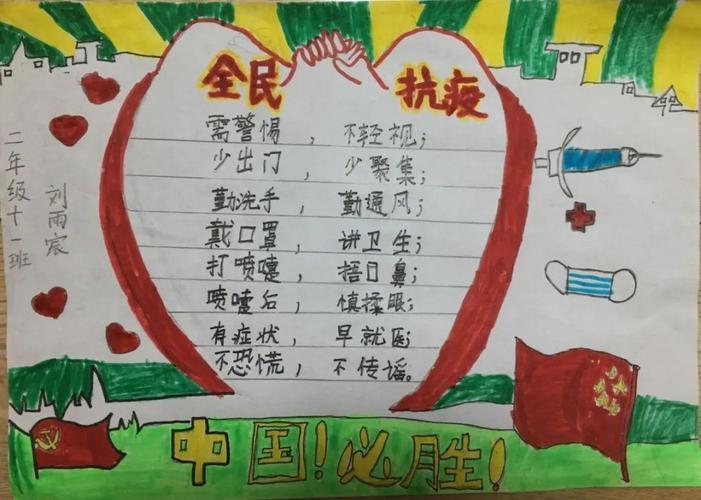 全民 抗疫
需警惕，不轻视；
少出门，少聚集；
勤洗手，勤通风；
戴口罩，讲卫生；
打喷嚏，捂口鼻；
喷嚏后，慎揉眼；
有症状，早就医；
不恐慌，不传谣。
二年级十一班
刘雨宸
中国！必胜！